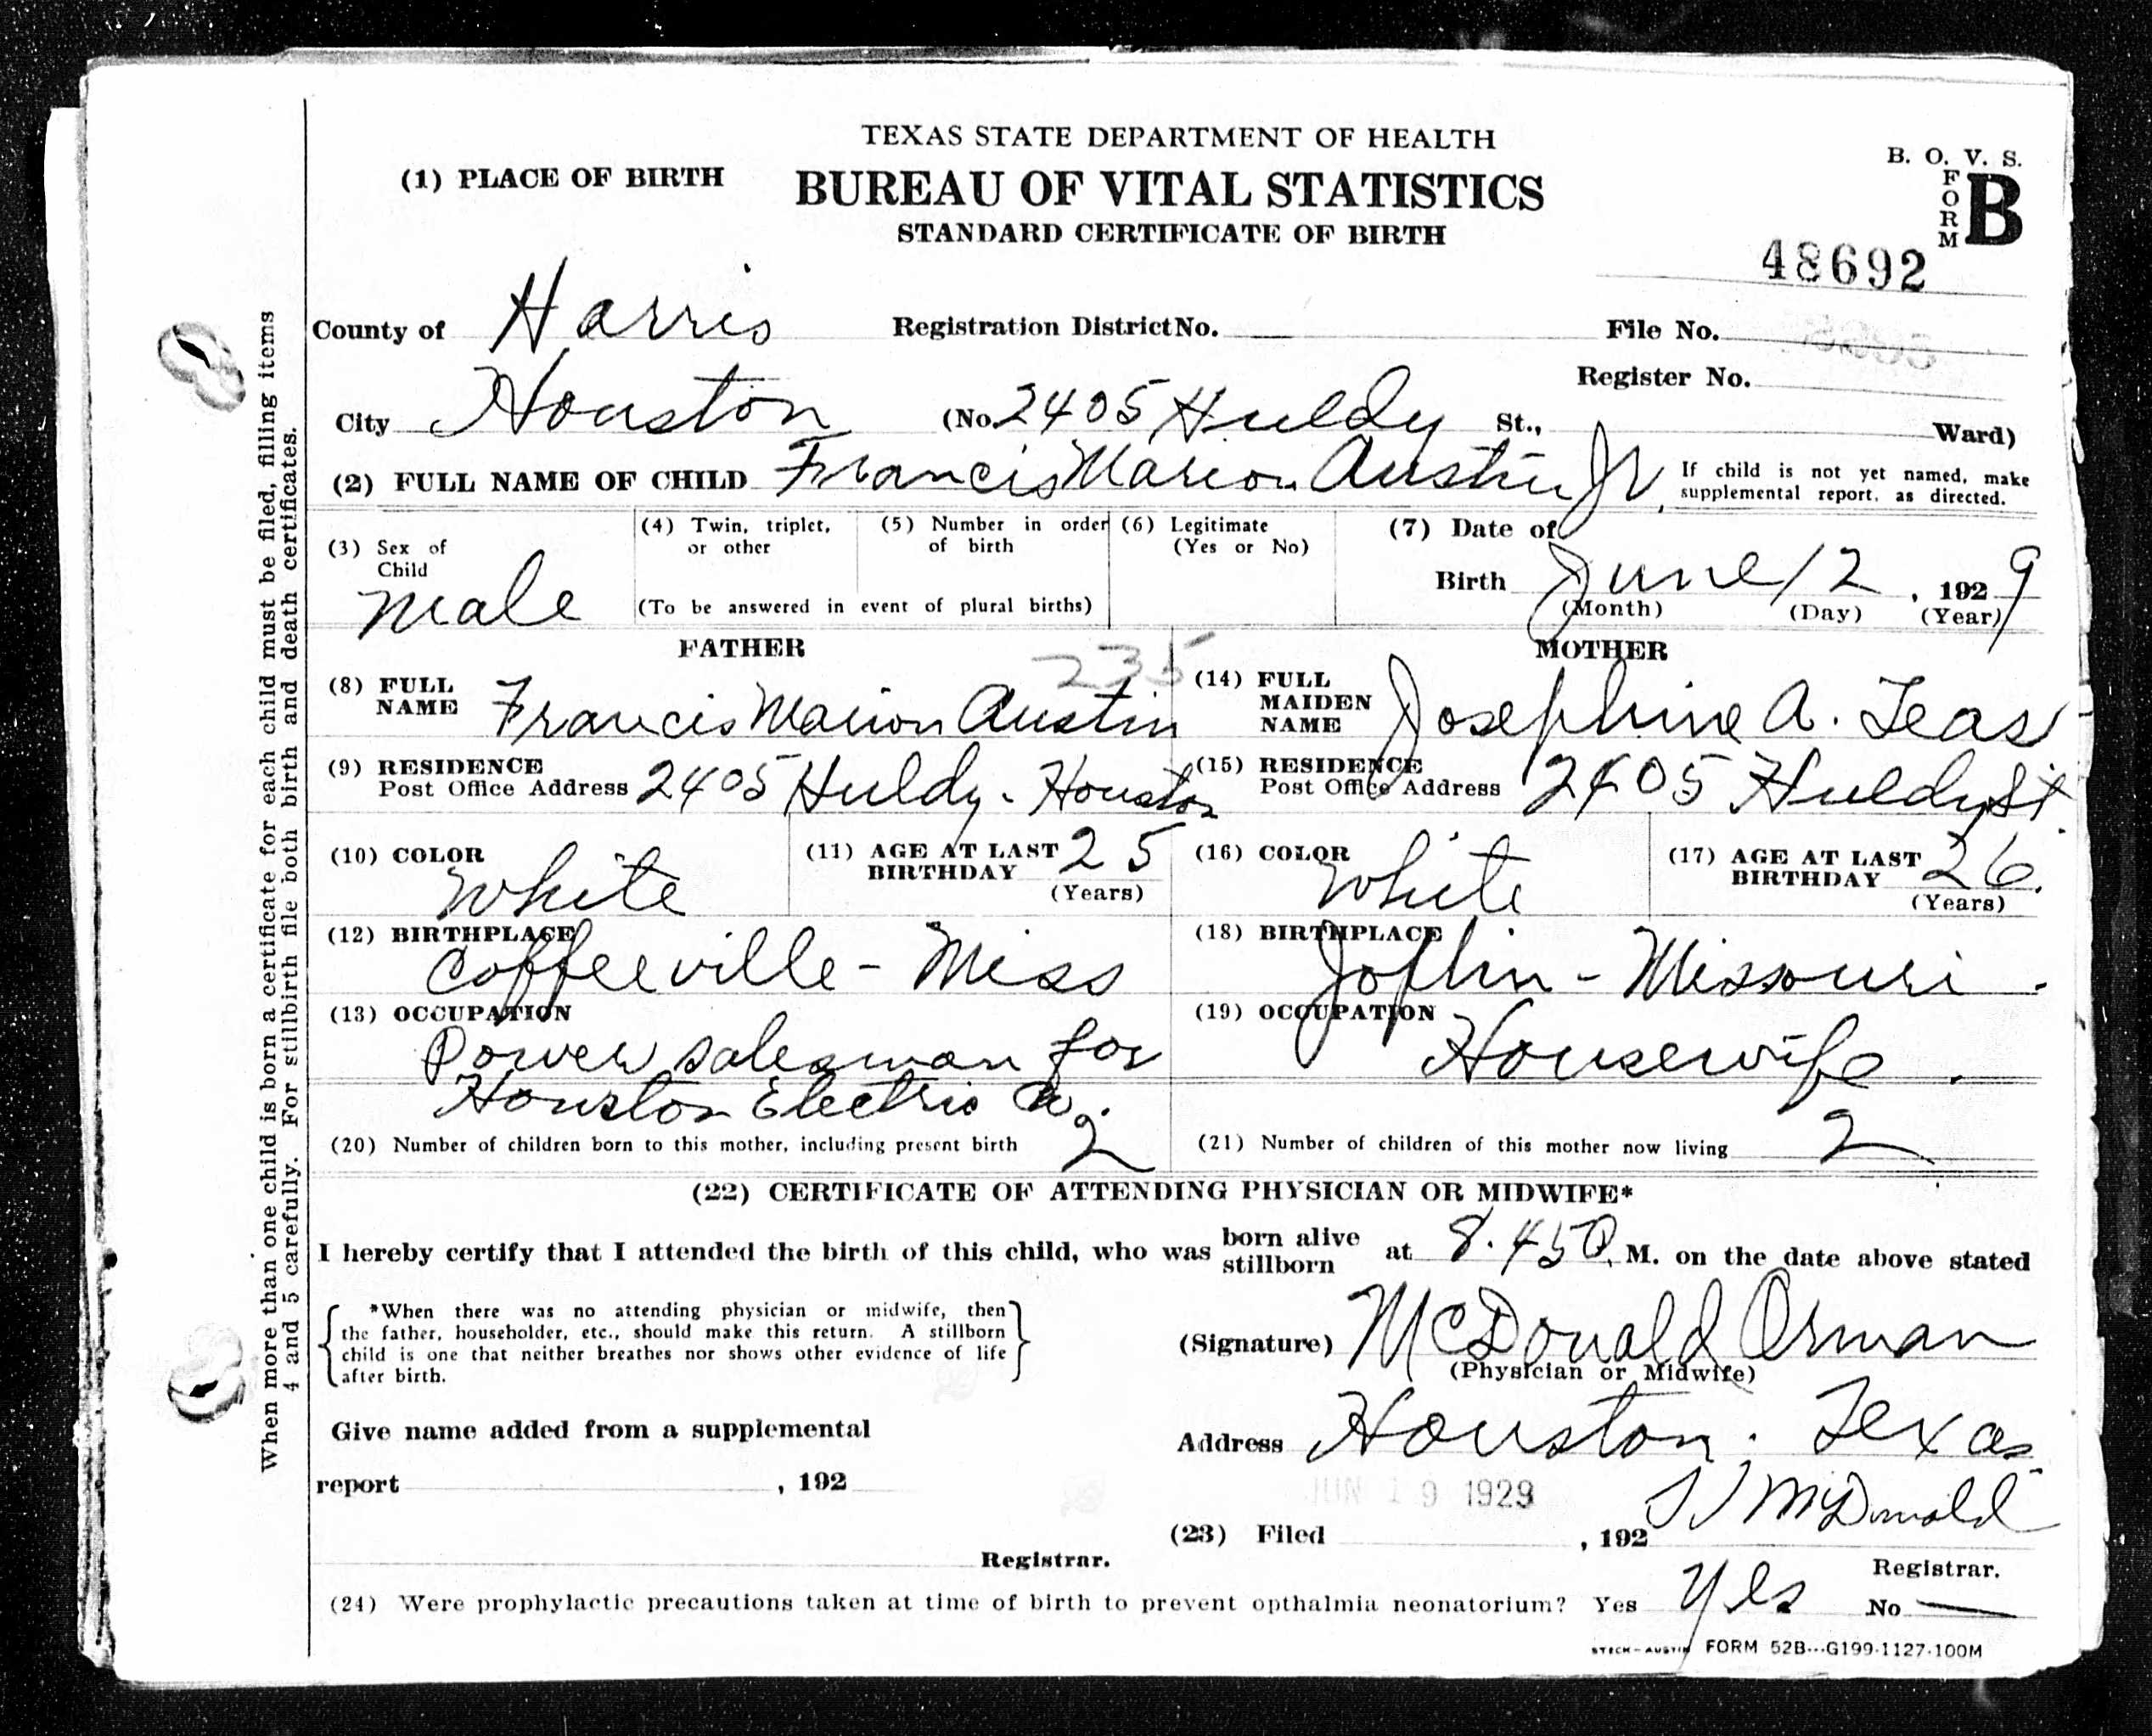 TEXAS STATE DEPARTMENT OF HEALTH
BUREAU OF VITAL STATISTICS
STANDARD CERTIFICATE OF BIRTH
B. O. V. S.
FORM B
48692
(1) PLACE OF BIRTH
County of Harris Registration District No. File No.
Register No.
City Houston (No. 2405 Huldy St., Ward)
(2) FULL NAME OF CHILD Francis Marion Austin Jr. If child is not yet named, make
supplemental report, as directed.
(3) Sex of Child Male
(4) Twin, triplet, or other
(5) Number in order of birth
(To be answered in event of plural births)
(6) Legitimate (Yes or No)
(7) Date of
Birth June 12, 1929
(Month) (Day) (Year)
FATHER
235
(8) FULL NAME Francis Marion Austin
(9) RESIDENCE
Post Office Address 2405 Huldy - Houston
(10) COLOR White
(11) AGE AT LAST BIRTHDAY 25
(Years)
(12) BIRTHPLACE
Coffeeville - Miss
(13) OCCUPATION
Power salesman for
Houston Electric Co.
(20) Number of children born to this mother, including present birth 2
MOTHER
(14) FULL MAIDEN NAME Josephine A. Teas
(15) RESIDENCE
Post Office Address 2405 Huldy St.
(16) COLOR White
(17) AGE AT LAST BIRTHDAY 26.
(Years)
(18) BIRTHPLACE
Joplin - Missouri.
(19) OCCUPATION
Housewife.
(21) Number of children of this mother now living 2
(22) CERTIFICATE OF ATTENDING PHYSICIAN OR MIDWIFE*
I hereby certify that I attended the birth of this child, who was born alive stillborn at 8.45 P. M. on the date above stated
*When there was no attending physician or midwife, then
the father, householder, etc., should make this return. A stillborn
child is one that neither breathes nor shows other evidence of life
after birth.
(Signature) McDonald Orman
(Physician or Midwife)
Give name added from a supplemental
report , 192
Registrar.
Address Houston. Texas
JUN 19 1929
(23) Filed , 192 McDonald
Registrar.
(24) Were prophylactic precautions taken at time of birth to prevent opthalmia neonatorium? Yes Yes No —
STECK-AUSTIN FORM 52B---G199-1127-100M
When more than one child is born a certificate for each child must be filed, filling items
4 and 5 carefully. For stillbirth file both birth and death certificates.